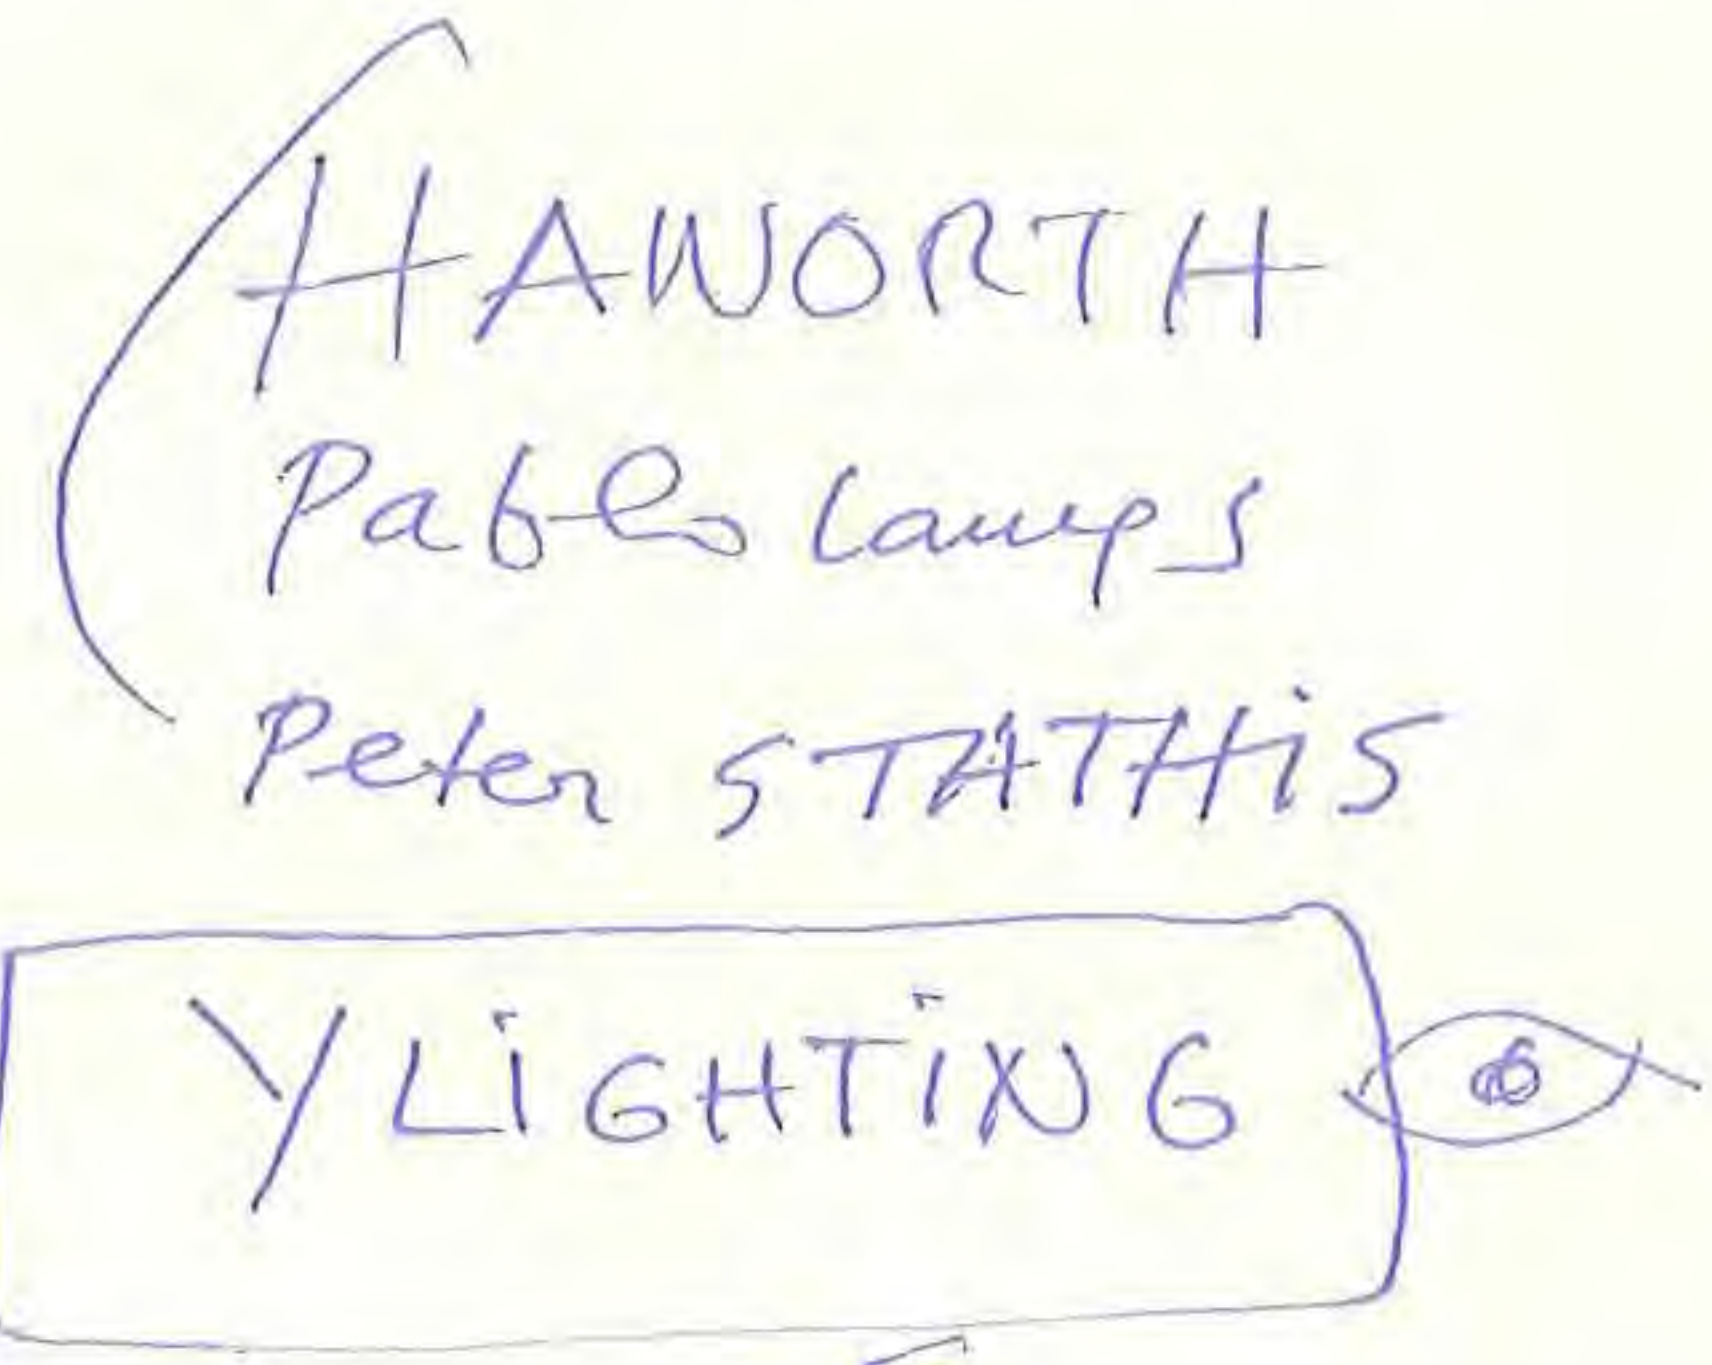 HAWORTH
Pablo Lamps
Peter STATHiS
YLiGHTiNG